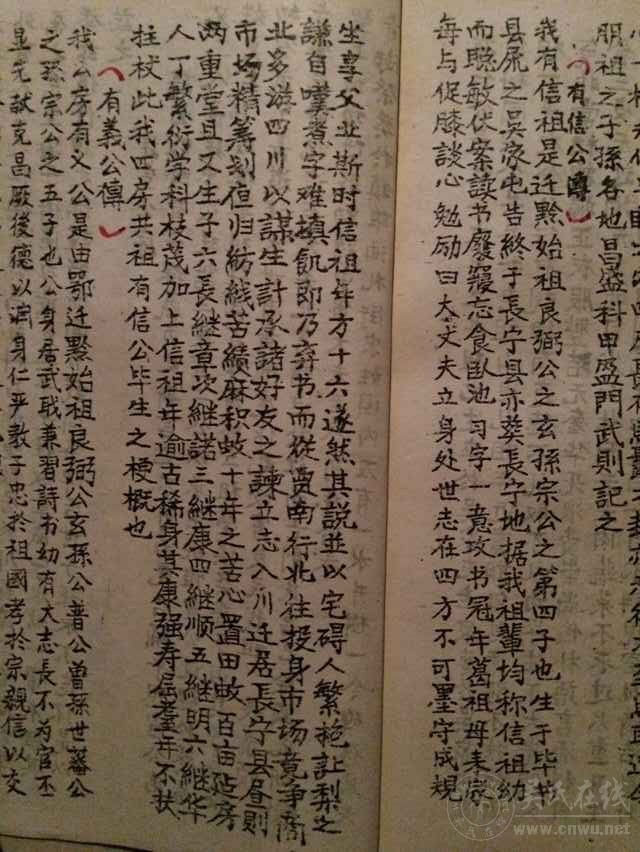 朋祖之子孫各地昌盛科甲盈門武則記之
有信公傳
我有信祖是迁黔始祖良弼公之玄孫宗公之第四子也生于毕节
县属之吴家屯告終于長宁县亦葵長宁地据我祖輩均称信祖幼
而聪敏伏案读书廢寝忘食臥池习字一意攻书冠年葛祖母来嵗
每与促膝談心勉励曰大丈夫立身处世志在四方不可墨守成規
坐享父业斯时信祖年方十六遂然其説並以宅碍人繁艳訨梨之
謙自嘆煮字难填飢即乃弃书而從贾南行北往投身市场竟争商
北多滋四川以謀生計承諸好友之諫立志入川迁居長宁县昼則
市场精筹划夜归紡織苦績麻积蚊十年之苦心置田畝百亩
两重堂且又生子六長継章次継諾三継康四継顺五継明六継华
人丁繁衍学科枝茂加上信祖年逾古稀身其康强寿屆耄年不扶
拄杖此我四房共祖有信公毕生之梗概也
有義公傳
我公房有义公是由鄂迁黔始祖良弼公玄孫公普公曽孫世蕃公
之孫宗公之五子也公身居武戢兼習詩书幼有大志長不为官丕
显先猷克昌厥後德以润身仁乎教子忠於祖國孝於宗親信以交
吴氏在线
www.cnwu.net